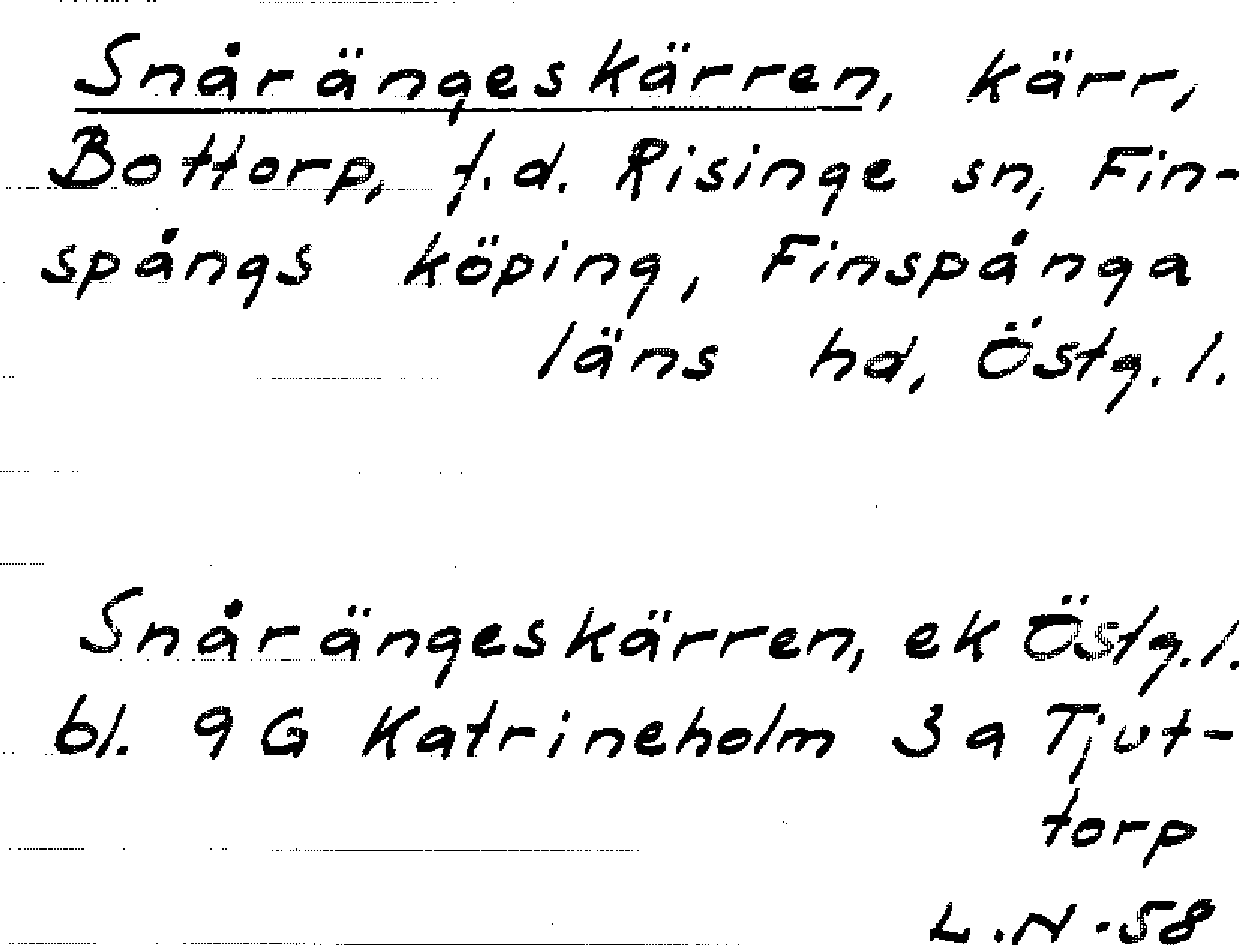 Snårängeskärren, kärr,
Bottorp, f.d. Risinge sn, Fin-
spångs köping, Finspånga
läns hd, Östg.l.
Snårängeskärren, ek Östg.l.
bl. 9G Katrineholm 3a Tjut-
torp
L.N.-58